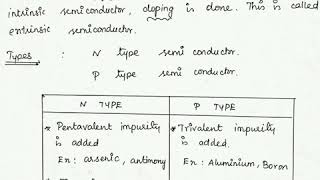 intrinsic semiconductor, doping is done. This is called
extrinsic semiconductor.
Types : N type semi conductor.
P type semi conductor.
N TYPE P TYPE
* Pentavalent impurity * Trivalent impurity
is added is added.
Ex: arsenic, antimony Ex: Aluminium, Boron